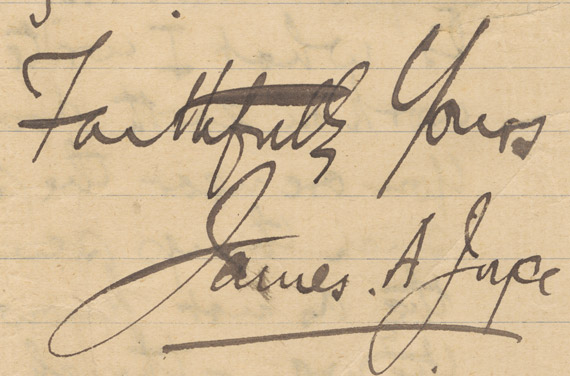 Faithfully Yours
James. A Joyce